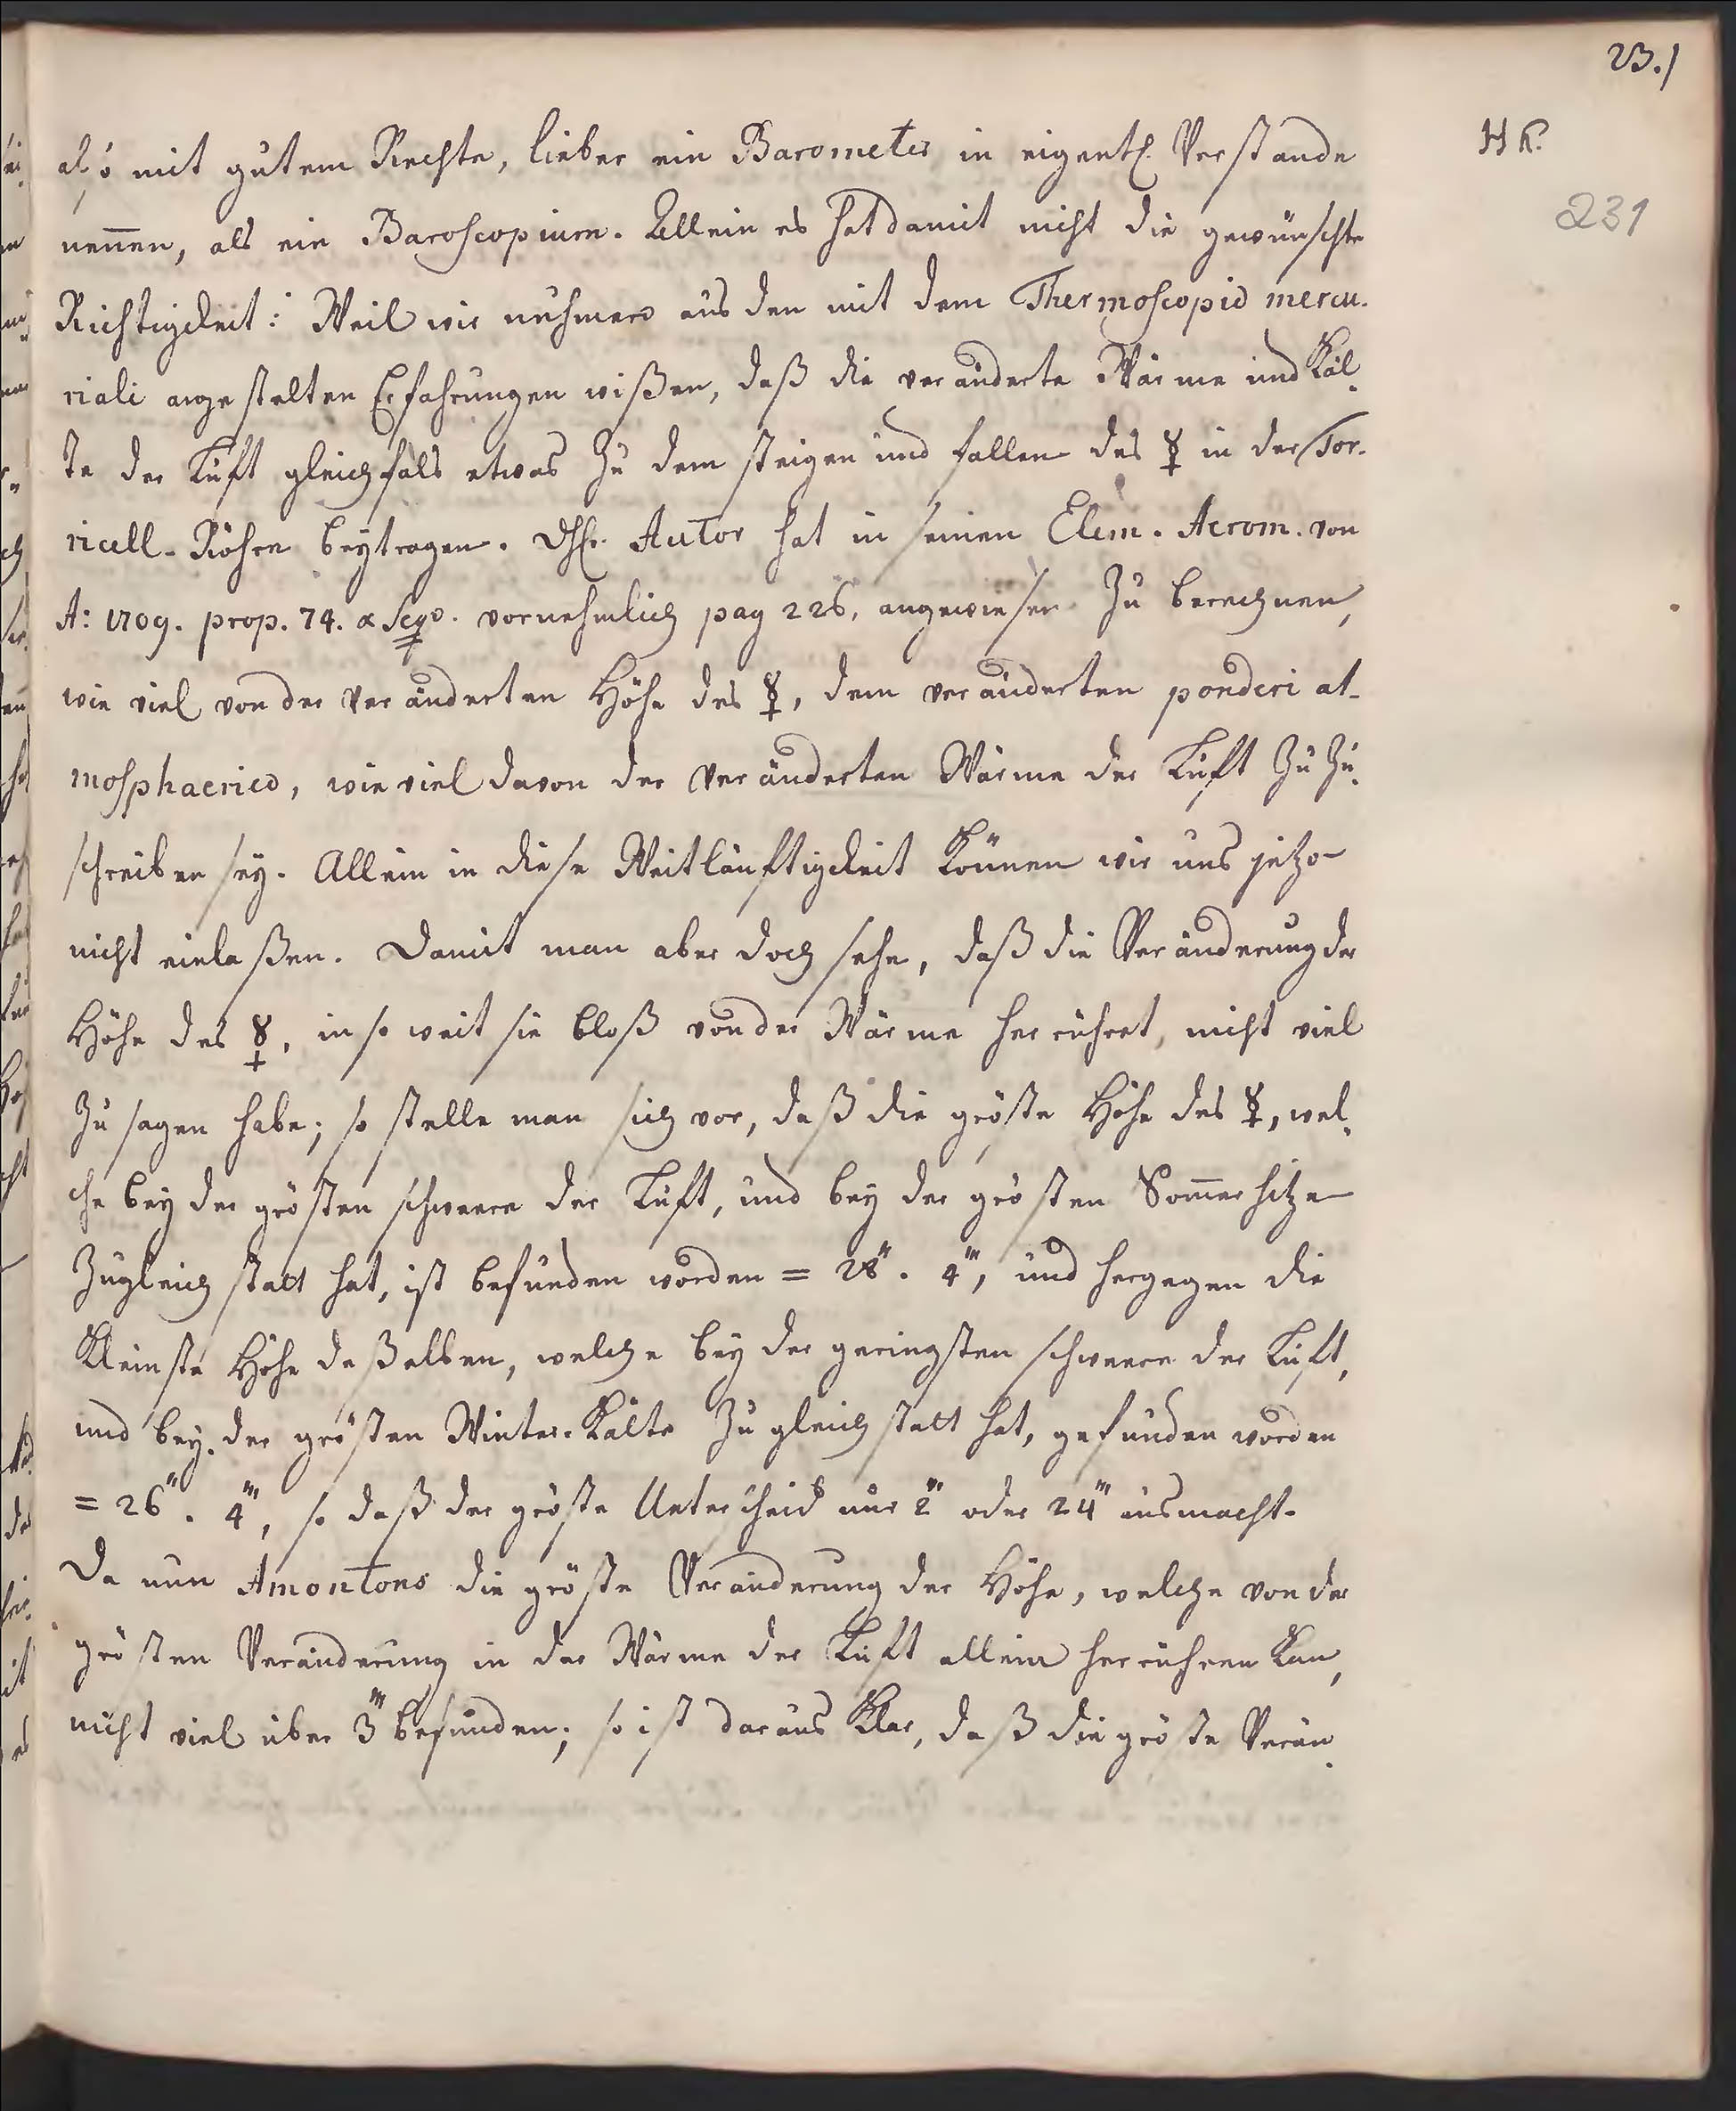 23./
H K.
231
also mit gutem Rechte, lieber ein Barometer in eigentl. Verstande
nennen, als ein Baroscopium. Allein es hat damit nicht die gewünschte
Richtigkeit: Weil wir nuhmero aus den mit dem Thermoscopio mercu-
riali angestelten Erfahrungen wißen, daß die veränderte Wärme und Käl-
te der Luft gleichfals etwas zu dem steigen und fallen des ☿ in der Tor-
ricell-Röhre beytragen. Autor hat in seinen Elem. Aerom. von
A: 1709. prop. 74. & seqq. vornehmlich pag 226, angewiesen zu berechnen,
wie viel von der veränderten Höhe des ☿, dem veränderten ponderi at-
mosphaerico, wie viel davon der veränderten Wärme der Luft zu zu-
schreiben sey. Allein in diese Weitläuftigkeit können wir uns jetzo
nicht einlaßen. Damit man aber doch sehe, daß die Veränderung der
Höhe des ☿, in so weit sie bloß von der Wärme herrühret, nicht viel
zu sagen habe; so stelle man sich vor, daß die größte Höhe des ☿, wel-
che bey der grösten schweere der Luft, und bey der grösten Sommerhitze
zugleich statt hat, ist befunden worden = 28". 4''', und hergegen die
kleinste Höhe deßelben, welche bey der geringsten schweere der Luft,
und bey der grösten Winter-Kälte zugleich statt hat, gefunden worden
= 26". 4''', so daß der größte Unterscheid nur 2" oder 24''' ausmacht.
Da nun Amontons die größte Veränderung der Höhe, welche von der
grösten Veränderung in der Wärme der Luft allein herrühren kan,
nicht viel über 3''' befunden; so ist daraus klar, daß die größte Verän-